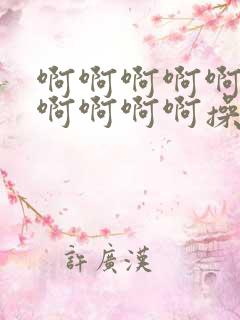 啊啊啊啊啊
啊啊啊啊操
許廣漢